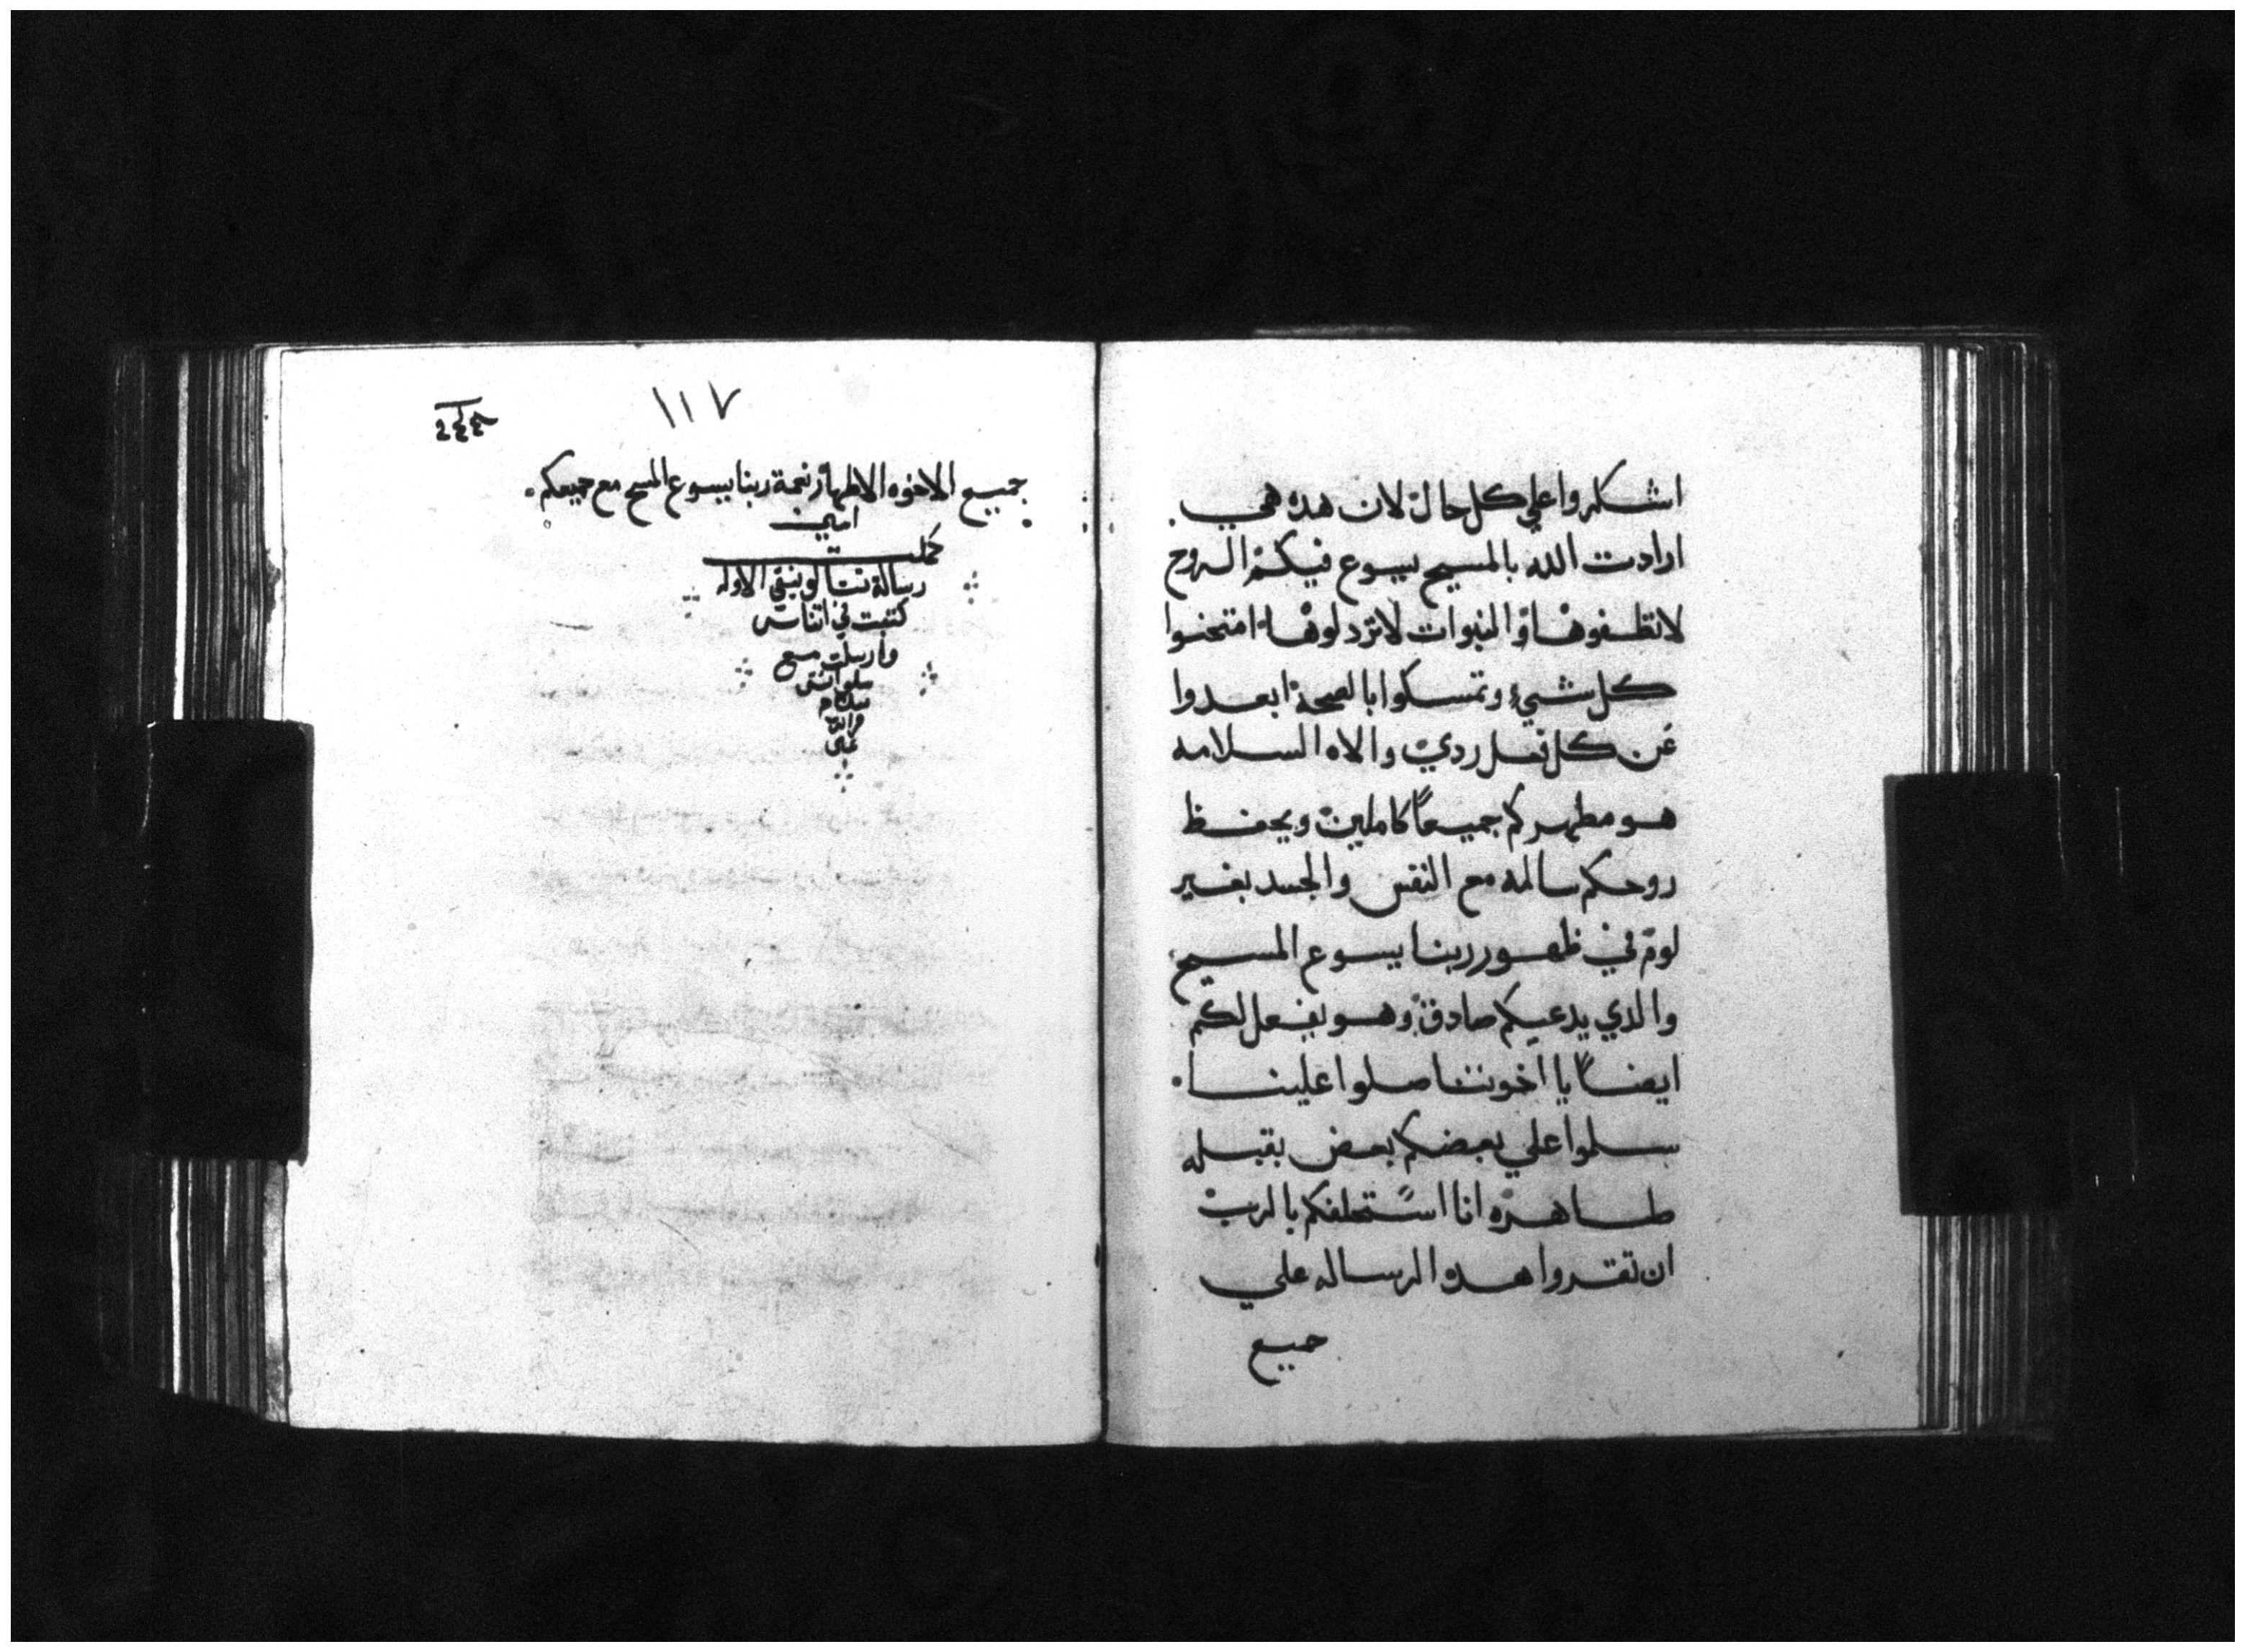 اشكروا علي كل حال لان هده هي.
ارادت الله بالمسيح يسوع فيكم الروح
لا تطفوها والنبوات لا تردلوها امتحنوا
كل شيء وتمسكوا بالصحة ابعدوا
عن كل فعل ردي والاه السلامه
هو مطهركم جميعاً كاملين ويحفظ
روحكم سالمه مع النفس والجسد بغير
لوم في ظهور ربنا يسوع المسيح
والدي يدعيكم صادق وهو يفعل لكم
ايضاً يا اخوتنا صلوا علينا.
سلموا علي بعضكم بعض بقبله
طاهره انا استحلفكم بالرب
ان تقروا هده الرساله علي
جميع
١١٧
جميع الاخوه الاطهار نعمة ربنا يسوع المسيح مع جميعكم.
امين
كملت
رسالة تسالونيقي الاوله
كتبت في اتناس
وارسلت مع
سلوانس